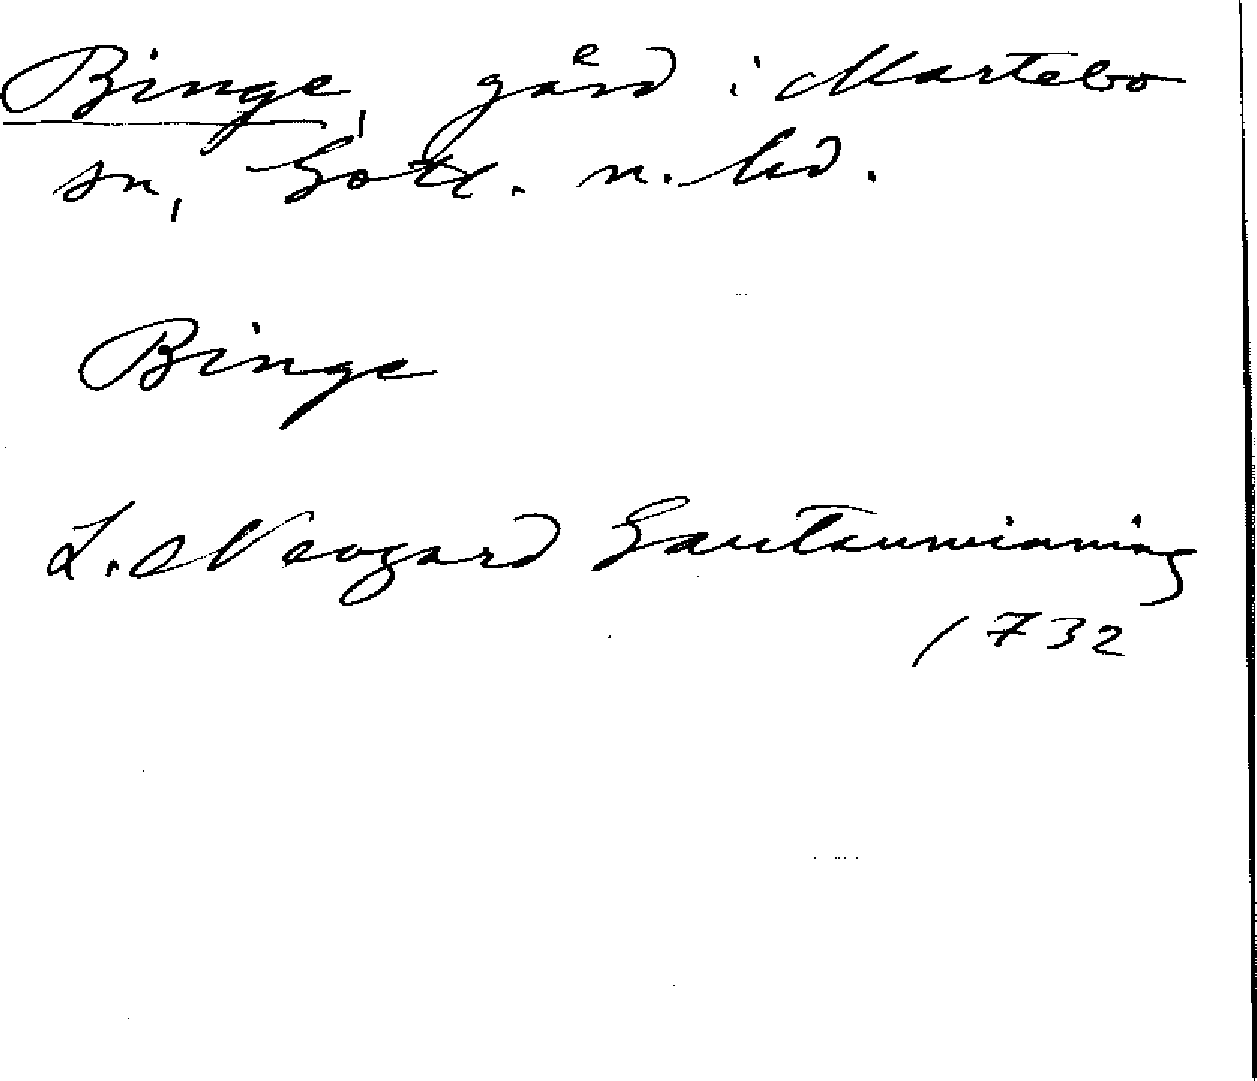 Binge, gård i Martebo
sn, Gotl. n. hd.
Binge
L. Neogard Gautauminning
1732